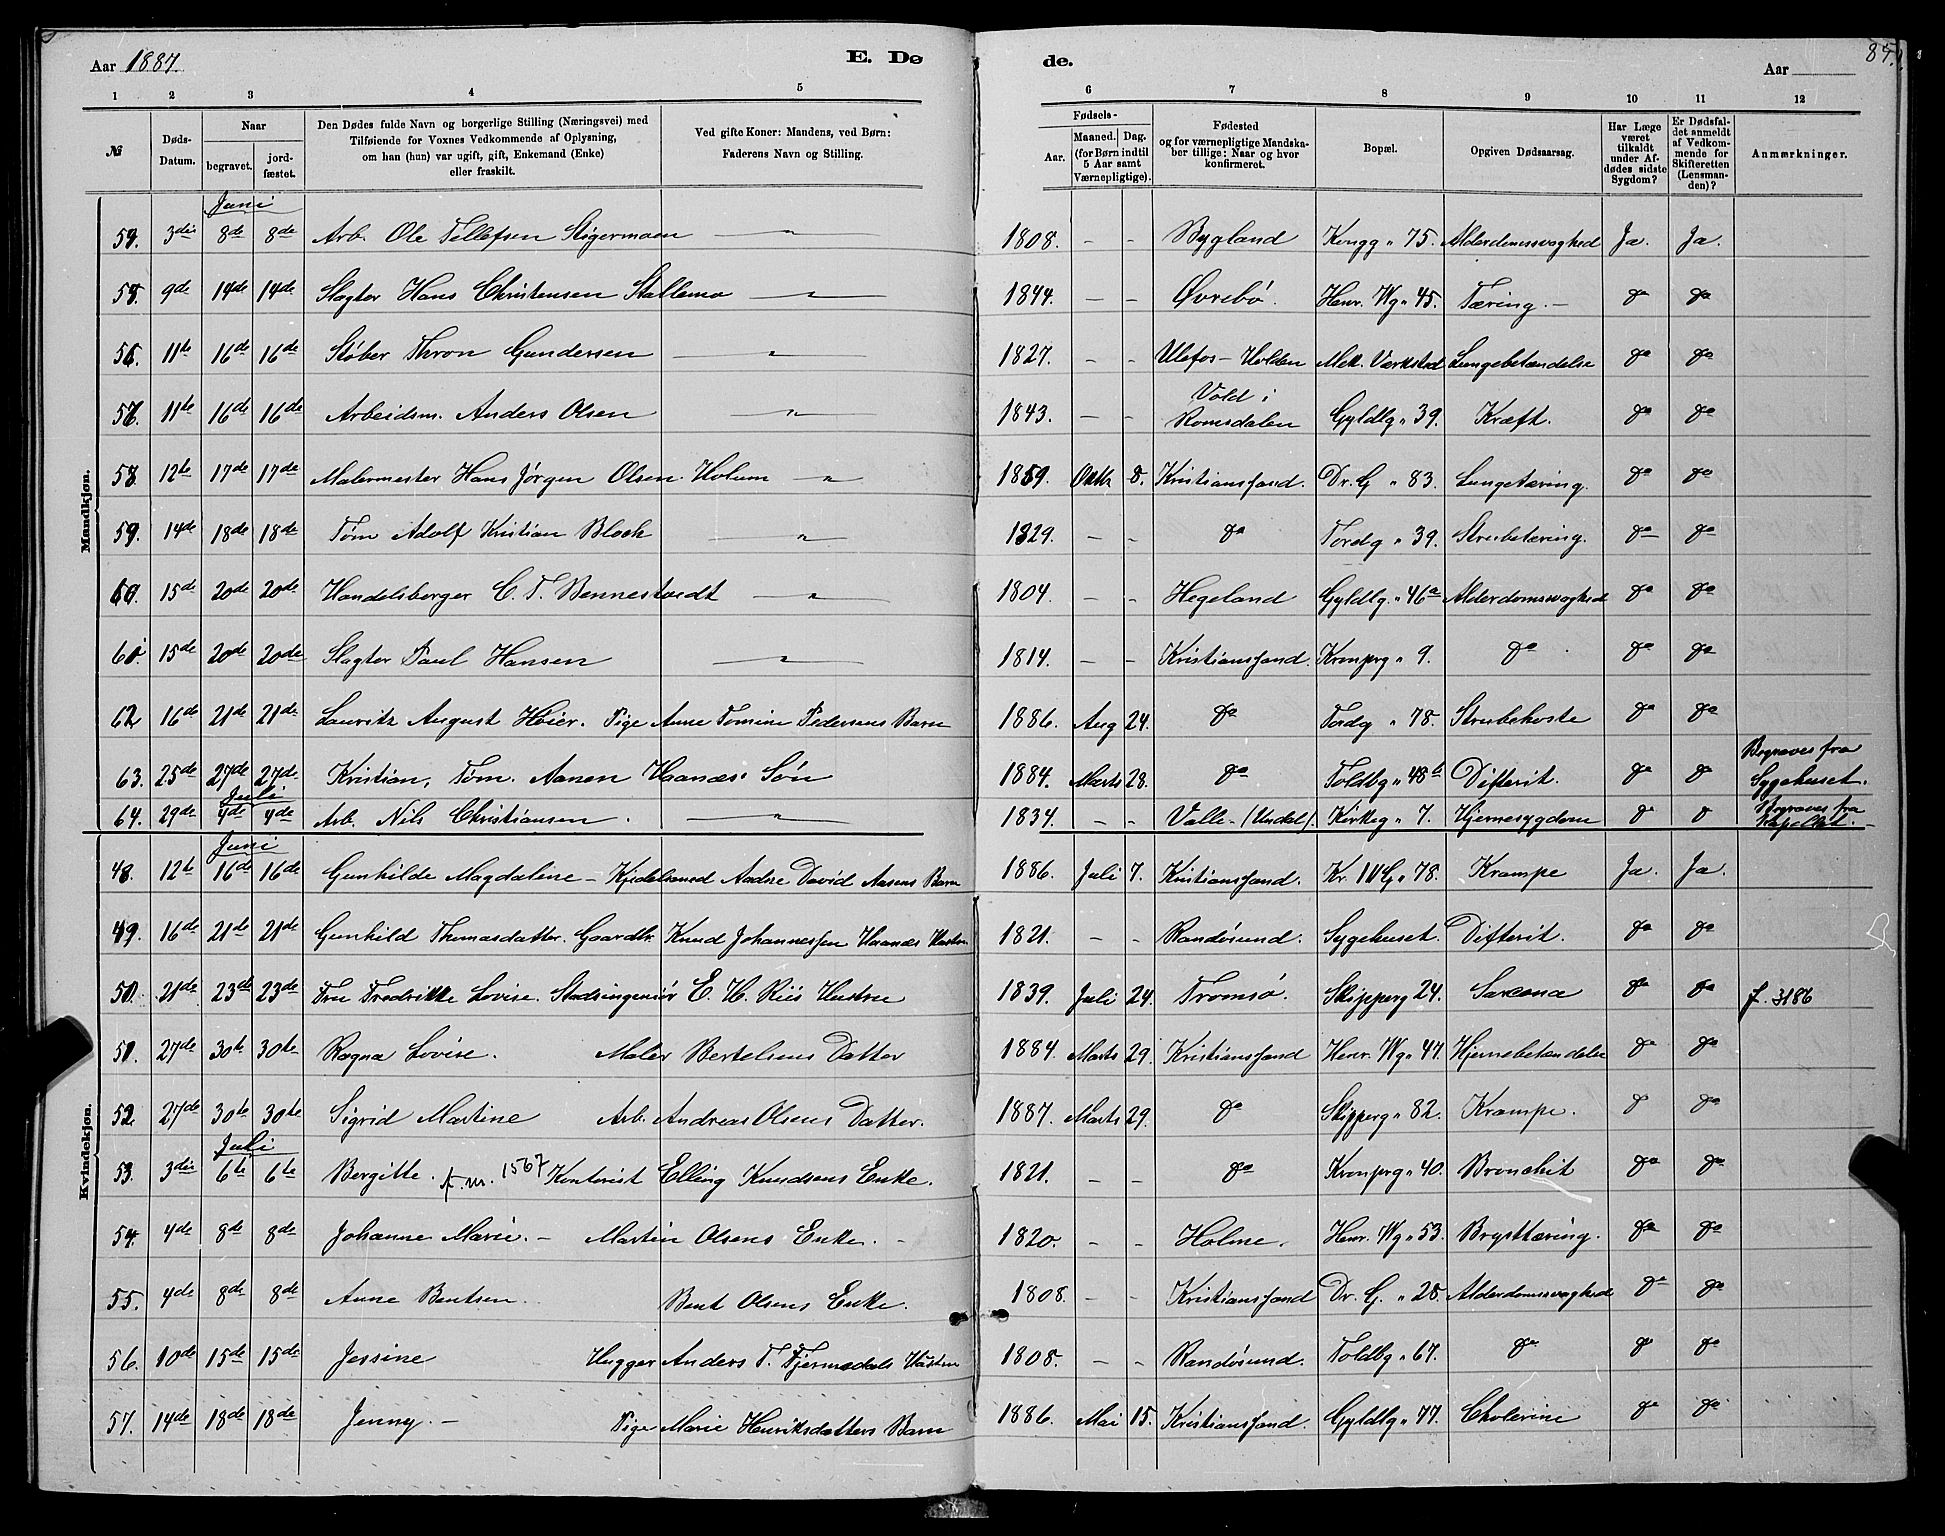 Aar 1887. E. Dø de. Aar 85.
1 2 3 4 5 6 7 8 9 10 11 12
№ Døds-Datum. Naar begravet. jordfæstet. Den Dødes fulde Navn og borgerlige Stilling (Næringsvei) med Tilføiende for Voxnes Vedkommende af Oplysning, om han (hun) var ugift, gift, Enkemand (Enke) eller fraskilt. Ved gifte Koner: Mandens, ved Børn: Faderens Navn og Stilling. Fødsels- Aar. Maaned. Dag. (for Børn indtil 5 Aar samt Værnepligtige). Fødested og for værnepligtige Mandskaber tillige: Naar og hvor konfirmeret. Bopæl. Opgiven Dødsaarsag. Har Læge været tilkaldt under Afdødes sidste Sygdom? Er Dødsfaldet anmeldt af Vedkommende for Skifteretten (Lensmanden)? Anmærkninger.
Mandkjøn.
Juni
54. 3die 8de 8de Arb. Ole Tellefsen Stigermoen " 1808. - - Bygland Kongg " 75. Alderdomssvaghed Ja. Ja.
55. 9de 14de 14de Slagter Hans Christensen Stallemo " 1844. - - Øvrebö. Henr. Wg " 45. Tæring. - do do
56. 11te 16de 16de Støber Thron Gundersen " 1827. - - Ulefos - Holden Mek. Værksted Lungebetændelse do do
57. 11te 16de 16de Arbeidsm. Anders Olsen " 1843. - - Vold i Romsdalen Gyldlg " 39. Kræft. do do
58. 12te 17de 17de Malermester Hans Jörgen Olsen Holum " 1859. Oktb 8. Kristianssand. Dr. G " 83. Lungetæring. do do
59. 14de 18de 18de Tøm Adolf Kristian Bloch " 1829. - - do Tordg " 39. Strubetæring. do do
60. 15de 20de 20de Handelsborger C. T. Bennestvedt " 1804. - - Hegeland Gyldlg. " 46a Alderdomssvaghed do do
61. 15de 20de 20de Slagter Paul Hansen " 1814. - - Kristianssand. Kronprg " 9. do do do
62 16de 21de 21de Lauritz August Høier. Pige Anne Tomine Pedersens Barn 1886. Aug 24. do Tordg " 78. Strubehoste do do
63. 25de 27de 27de Kristian, Tøm. Aanen Haanæs' Søn 1884. Marts 28. do Toldbg " 48b Difterit. do do Begraves fra Sygehuset.
Juli
64. 29de 4de 4de Arb. Nils Christiansen. " 1834. - - Valle - (Undal). Kirkeg " 7. Hjernesygdom do do Begraves fra Kapellet.
Kvindekjøn.
Juni
48. 12te 16de 16de Gunhilde Magdalene - Kjedelsmed Andre David Aasens Barn 1886. Juli 7. Kristianssand. Kr. IV G " 78. Krampe Ja. Ja.
49. 16de 21de 21de Gunhild Thomasdatter. Gaardbr. Knud Johannessen Haanæs Hustru 1821. - - Randøsund. Sygehuset. Difterit. do do
50. 21de 23de 23de Fru Fredrikke Lovise. Stadsingeniør E. H. Riis Hustru 1839. Juli 24. Tromsø. Skipperg 24. Sarcoma do do f. 3186
51. 27de 30te 30te Ragna Lovise. Maler Bertelsens Datter 1884. Marts 29. Kristianssand Henr. Wg " 44. Hjernebetændelse do do
52. 27de 30te 30te Sigrid Martine Arb. Andreas Olsens Datter. 1887. Marts 29. do Skipperg " 82. Krampe. do do
Juli
53. 3die 6te 6te Bergitte. f.m. 1567 Kontorist Elling Knudsens Enke. 1821. - - do Kronprg " 40. Bronchit do do
54. 4de 8de 8de Johanne Marie. - Martin Olsens Enke. - 1820. - - Holme. Henr. Wg " 53. Brysttæring. do do
55. 4de 8de 8de Anne Bentsen. Bent Olsens Enke. 1808. - - Kristianssand Dr. G. " 28. Alderdomssvaghed do do
56. 10de 15de 15de Jessine Hugger Anders T. Fjermedals Hustru 1808. - - Randøsund. Toldbg " 67. do do do
57. 14de 18de 18de Jenny. - Pige Marie Henriksdatters Barn 1886. Mai 15. Kristianssand. Gyldlg " 77. Cholerine do do